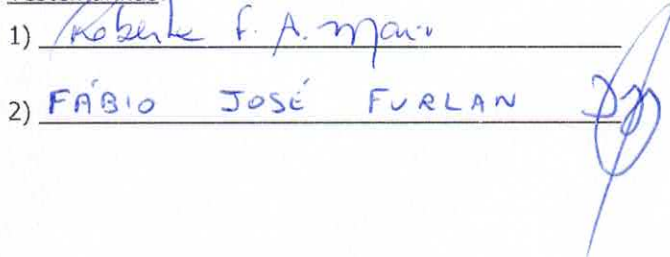 1) Roberta F. A. M
2) FÁBIO JOSÉ FURLAN